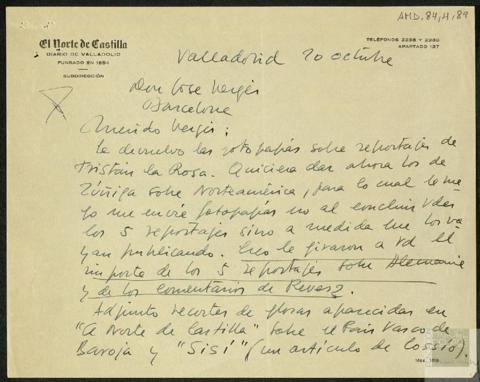 AMD. 84,4,89
El Norte de Castilla
DIARIO DE VALLADOLID
FUNDADO EN 1854
SUBDIRECCIÓN
TELÉFONOS 2238 Y 2239
APARTADO 127
Valladolid 20 octubre
Don Jose Vergés
Barcelona
Querido Vergés:
Le devuelvo las fotografías sobre reportajes de
Tristán la Rosa. Quisiera dar ahora los de
Zúñiga sobre Norteamérica, para lo cual le rue-
go me envíe fotografías no al concluir Vdes
los 5 reportajes sino a medida que los va-
yan publicando. Creo le giraron a Vd el
importe de los 5 reportajes sobre Alemania
y de los comentarios de Revesz.
Adjunto recortes de glosas aparecidas en
"El Norte de Castilla" sobre el País Vasco de
Baroja y "Sisí" (un artículo de Cossío).